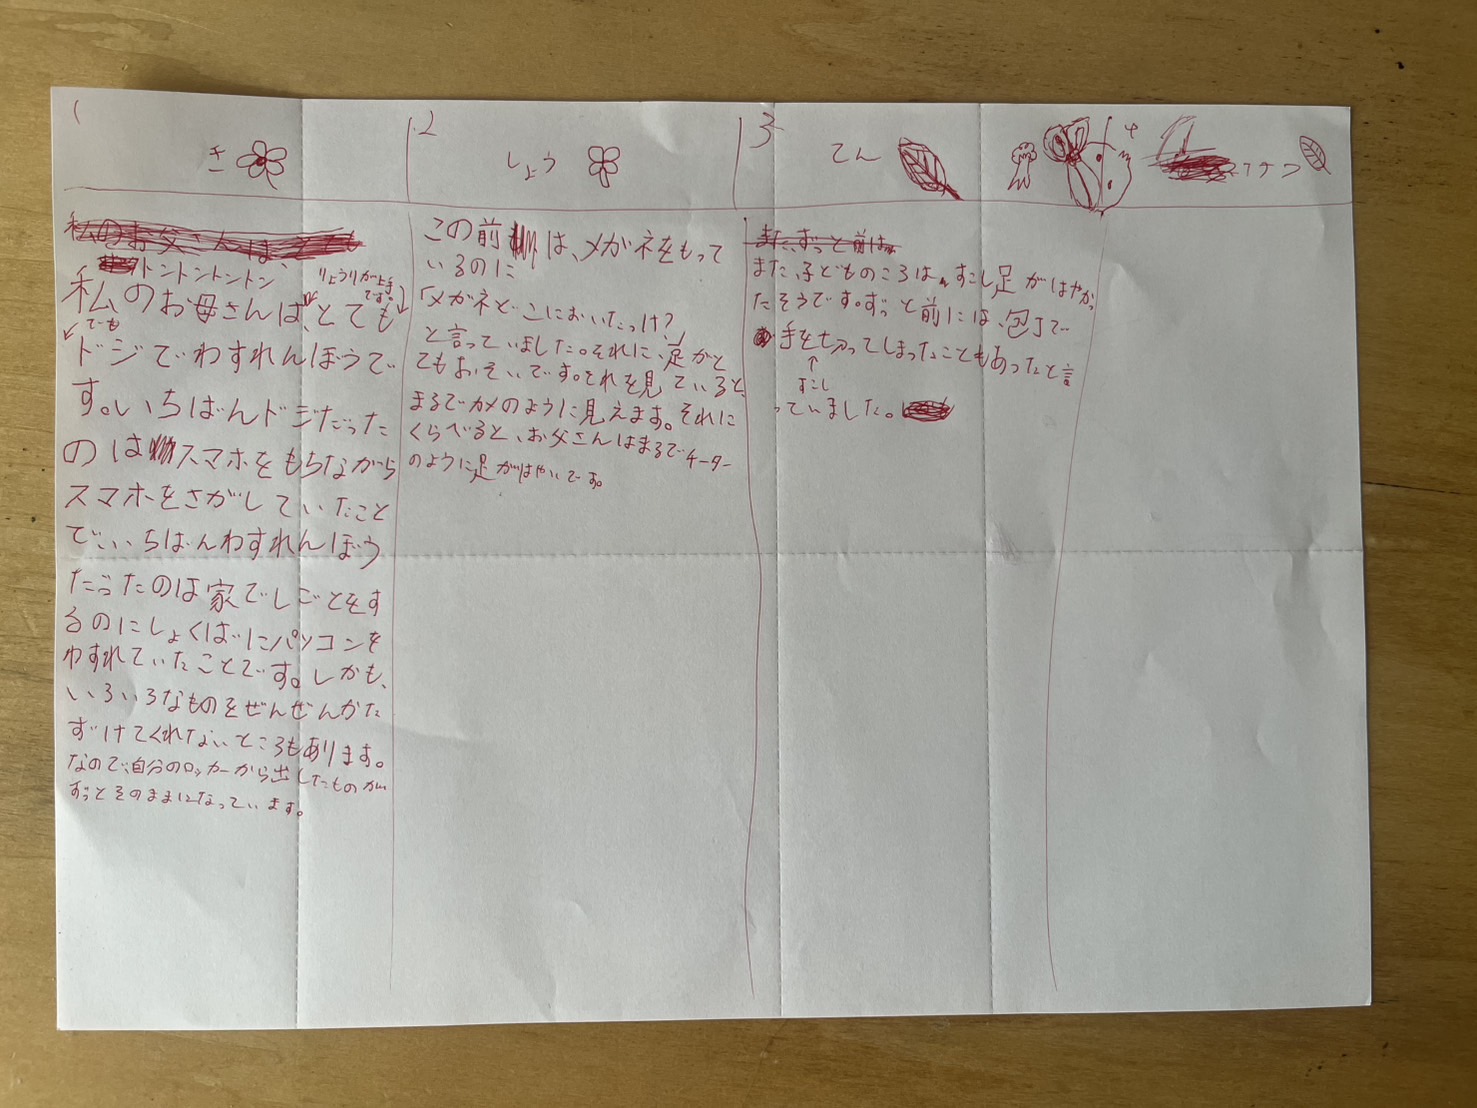 1
き
私のお父さんは、とても
トントントントン
りょうりが上手
です。
私のお母さんは、とても
でも
ドジでわすれんぼうで
す。いちばんドジだった
のはスマホをもちながら
スマホをさがしていたこと
で、いちばんわすれんぼう
だったのは家でしごとをす
るのにしょくばにパソコンを
わすれていたことです。しかも、
いろいろなものをぜんぜんかた
ずけてくれないところもあります。
なので、自分のロッカーから出したものが
ずっとそのままになっています。
2
しょう
この前は、メガネをもって
いるのに
「メガネどこにおいたっけ?」
と言っていました。それに、足がと
てもおそいです。それを見ていると、
まるでカメのように見えます。それに
くらべると、お父さんはまるでチーター
のように足がはやいです。
3
てん
また、ずっと前は
また、子どものころは、すこし足がはやか
たそうです。ずっと前には、包丁で
手を切ってしまったこともあったと言
すこし
っていました。
4